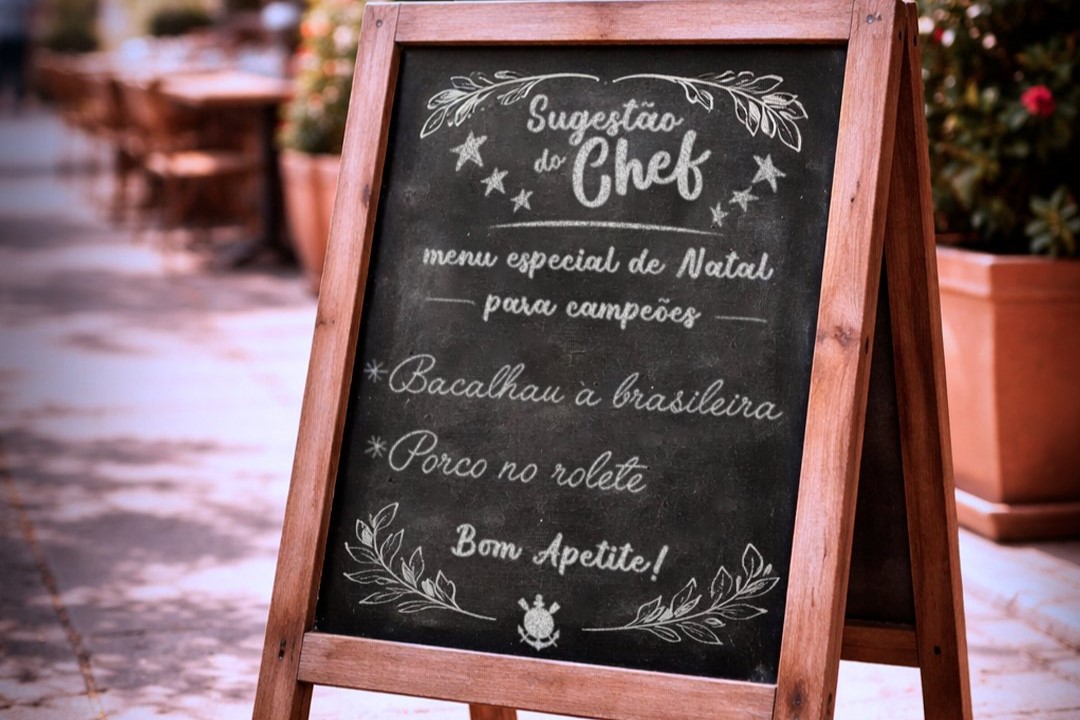 Sugestão
do Chef
menu especial de Natal
para campeões
* Bacalhau à brasileira
* Porco no rolete
Bom Apetite!